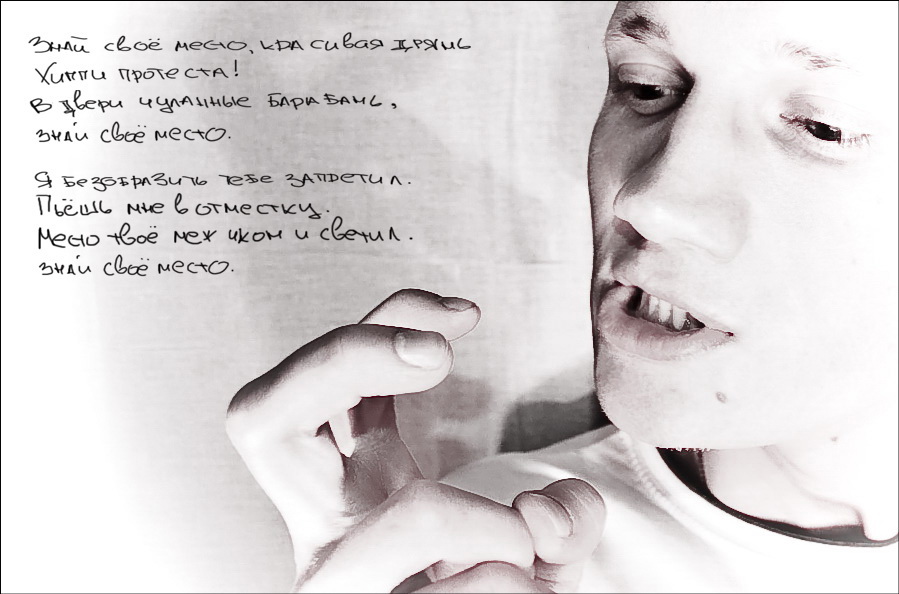 Знай своё место, красивая дрянь
Хиппи протеста!
В двери чуланные барабань,
знай своё место.
Я безобразить тебе запретил.
Пьёшь мне в отместку.
Место твоё меж икон и светил.
знай своё место.